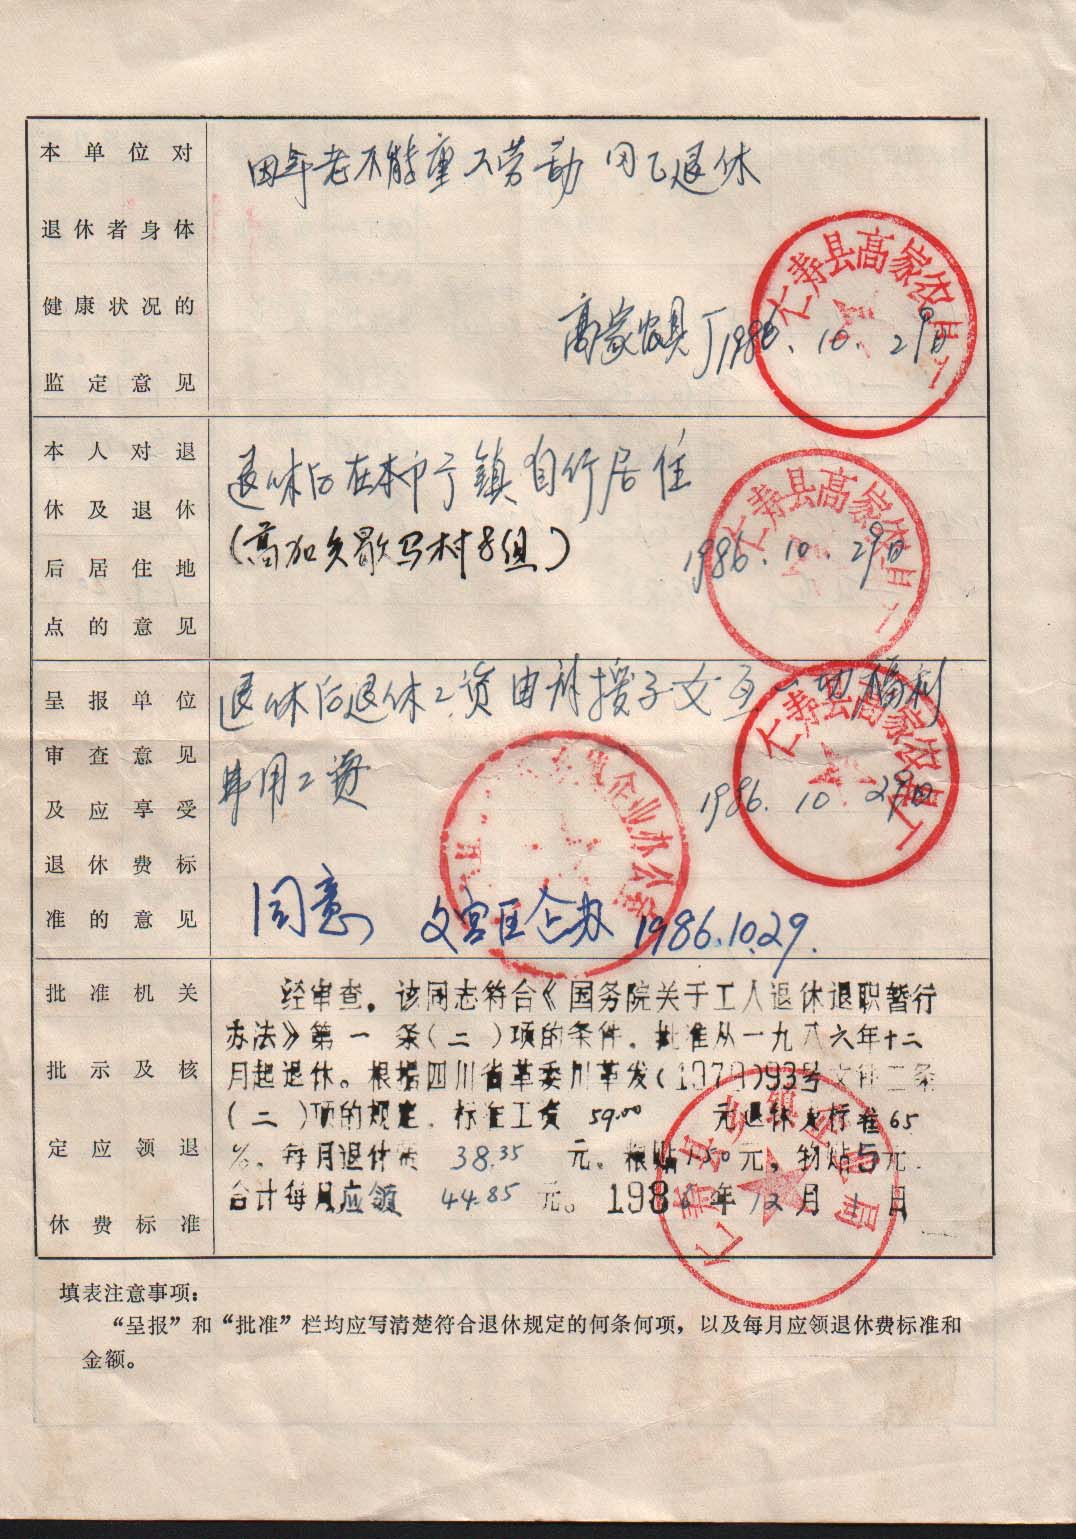 本单位对
退休者身体
健康状况的
监定意见
因年老不能重工劳动 因乙退休
高家农具厂1986.10.29日
仁寿县高家农具厂
本人对退
休及退休
后居住地
点的意见
退休后在本市宁镇自行居住
(高加乡歇马村8组)
1986.10.29日
仁寿县高家农具厂
呈报单位
审查意见
及应享受
退休费标
准的意见
退休后退休工资由 子女 一切福利
用工资
1986.10.29日
仁寿县高家农具厂
企业办公
同意 文宫区企办 1986.10.29.
批准机关
批示及核
定应领退
休费标准
经审查,该同志符合《国务院关于工人退休退职暂行
办法》第一条(二)项的条件,批准从一九八六年十二
月起退休。根据四川省革委川革发(1979)93号文件二条
(二)项的规定,标准工资 59.00 元退休费标准65
%,每月退休费 38.35 元,粮贴1.50元,物贴5元,
合计每月应领 44.85 元。1986年12月1日
仁寿县乡镇企业局
填表注意事项:
“呈报”和“批准”栏均应写清楚符合退休规定的何条何项,以及每月应领退休费标准和
金额。